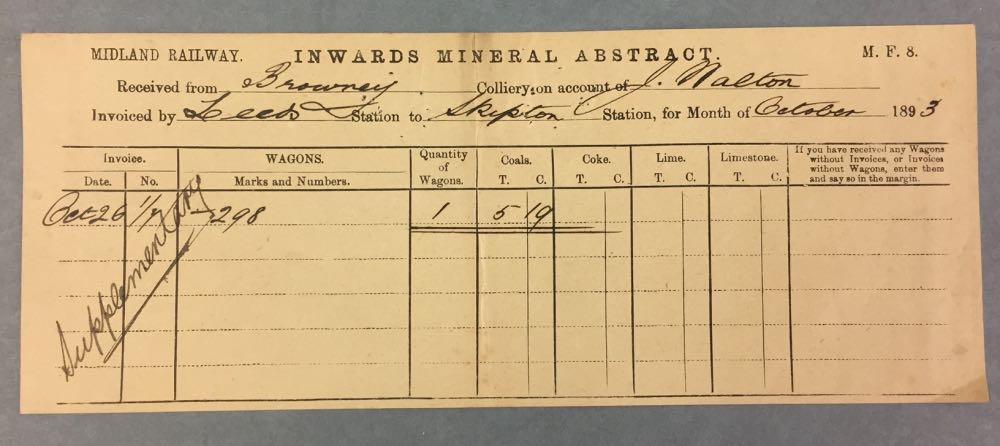 MIDLAND RAILWAY. INWARDS MINERAL ABSTRACT. M. F. 8.
Received from Browney Colliery, on account of J. Walton
Invoiced by Leeds Station to Skipton Station, for Month of October 1893
Invoice. WAGONS. Quantity of Wagons. Coals. Coke. Lime. Limestone. If you have received any Wagons without Invoices, or Invoices without Wagons, enter them and say so in the margin.
Date. No. Marks and Numbers. T. C. T. C. T. C. T. C.
Oct 26 298 1 5 19
Supplementary